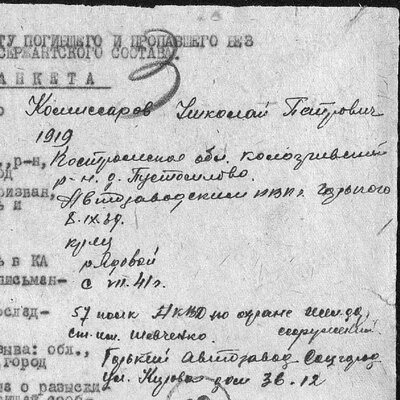 ТУ ПОГИБШЕГО И ПРОПАВШЕГО БЕЗ
СЕРЖАНТСКОГО СОСТАВА.
3
АНКЕТА
о Комиссаров Николай Петрович
1919
., р-н, Костромская обл. Кологривский
од р-н. д. Пустошлово.
ризван, Автозаводским РВК г. Горького
ь и 8.IX.39.
кр-ц
ь в КА рядовой
письман- с VII.41 г.
послед- 57 полк НКВД по охране жил.дор.
ст. им. Шевченко. сооружений
зыва: обл., Горький Автозавод Соцгород
город ул. Кирова дом 36-12
на о разыски-